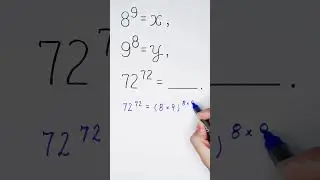 8⁹ = x,
9⁸ = y,
72⁷² = ____.
72⁷² = (8 × 9)⁸ˣ
72⁷² , 8 × 9